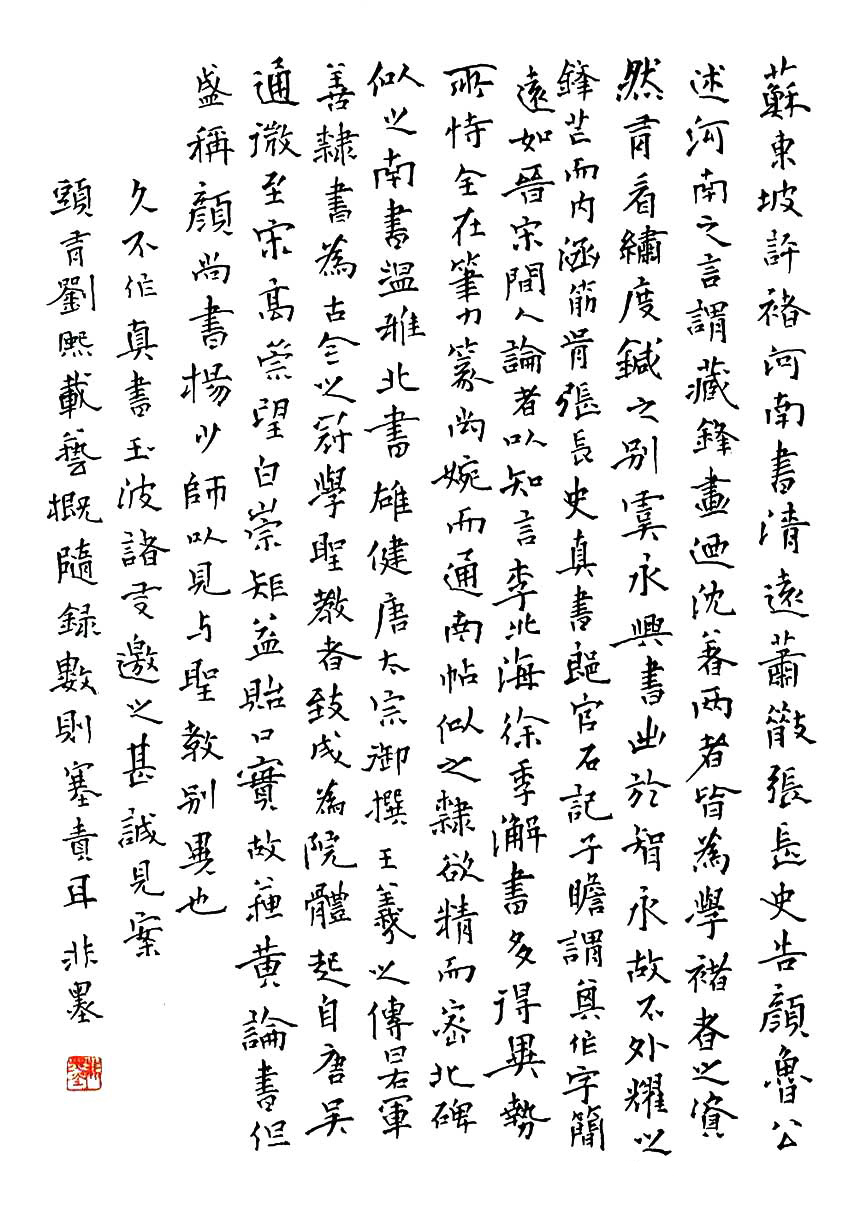 蘇東坡評褚河南書清遠蕭散張長史告顏魯公
述河南之言謂藏鋒畫迺沈著兩者皆為學褚者之資
然有看繡度鍼之別虞永興書出於智永故不外耀以
鋒芒而內涵筋骨張長史真書郎官石記子瞻謂其作字簡
遠如晉宋間人論者以知言李北海徐季澥書多得異勢
所恃全在筆力篆尚婉而通南帖似之隸欲精而密北碑
似之南書溫雅北書雄健唐太宗御撰王羲之傳曷軍
善隸書為古今之冠學聖教者致成為院體起自唐吳
通微至宋高崇望白崇矩益貽口實故蘇黃論書但
盛稱顏尚書楊少師以見与聖教別異也
久不作真書玉波諸友邀之甚誠見案
頭有劉熙載藝概隨錄數則塞責耳 非墨